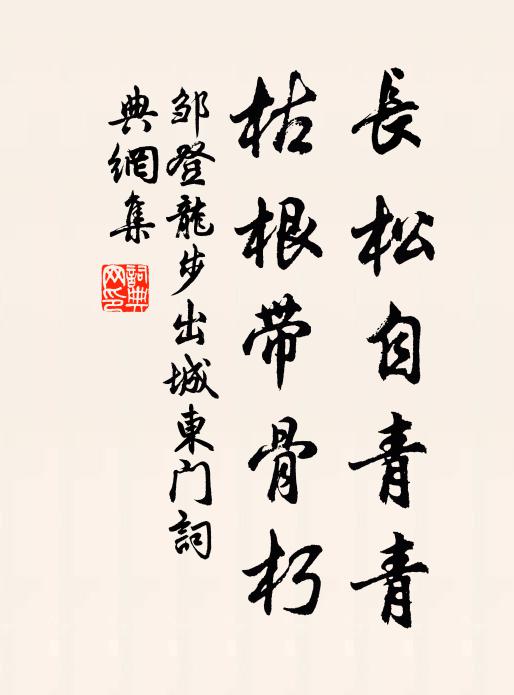 長松自青青
枯根带骨朽
邹登龍步出城東门詞
典網集
詞典
网印